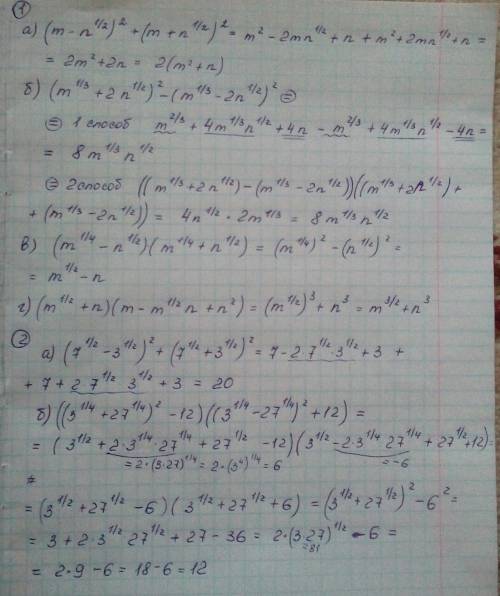 ①
а) (m - n^1/2)^2 + (m + n^1/2)^2 = m^2 - 2mn^1/2 + n + m^2 + 2mn^1/2 + n =
= 2m^2 + 2n = 2(m^2 + n)
б) (m^1/3 + 2n^1/2)^2 - (m^1/3 - 2n^1/2)^2 ⊜
⊜ 1 способ m^2/3 + 4m^1/3 n^1/2 + 4n - m^2/3 + 4m^1/3 n^1/2 - 4n =
= 8m^1/3 n^1/2
⊜ 2 способ ((m^1/3 + 2n^1/2) - (m^1/3 - 2n^1/2))((m^1/3 + 2n^1/2) +
+ (m^1/3 - 2n^1/2)) = 4n^1/2 · 2m^1/3 = 8m^1/3 n^1/2
в) (m^1/4 - n^1/2)(m^1/4 + n^1/2) = (m^1/4)^2 - (n^1/2)^2 =
= m^1/2 - n
г) (m^1/2 + n)(m - m^1/2 n + n^2) = (m^1/2)^3 + n^3 = m^3/2 + n^3
②
а) (7^1/2 - 3^1/2)^2 + (7^1/2 + 3^1/2)^2 = 7 - 2·7^1/2·3^1/2 + 3 +
+ 7 + 2 7^1/2 3^1/2 + 3 = 20
б) ((3^1/4 + 27^1/4)^2 - 12)((3^1/4 - 27^1/4)^2 + 12) =
= (3^1/2 + 2·3^1/4·27^1/4 + 27^1/2 - 12)(3^1/2 - 2·3^1/4 27^1/4 + 27^1/2 + 12) =
= 2·(3·27)^1/4 = 2·(3^4)^1/4 = 6 = -6
= (3^1/2 + 27^1/2 - 6)(3^1/2 + 27^1/2 + 6) = (3^1/2 + 27^1/2)^2 - 6^2 =
= 3 + 2·3^1/2 27^1/2 + 27 - 36 = 2·(3·27)^1/2 - 6 =
=81
= 2·9 - 6 = 18 - 6 = 12